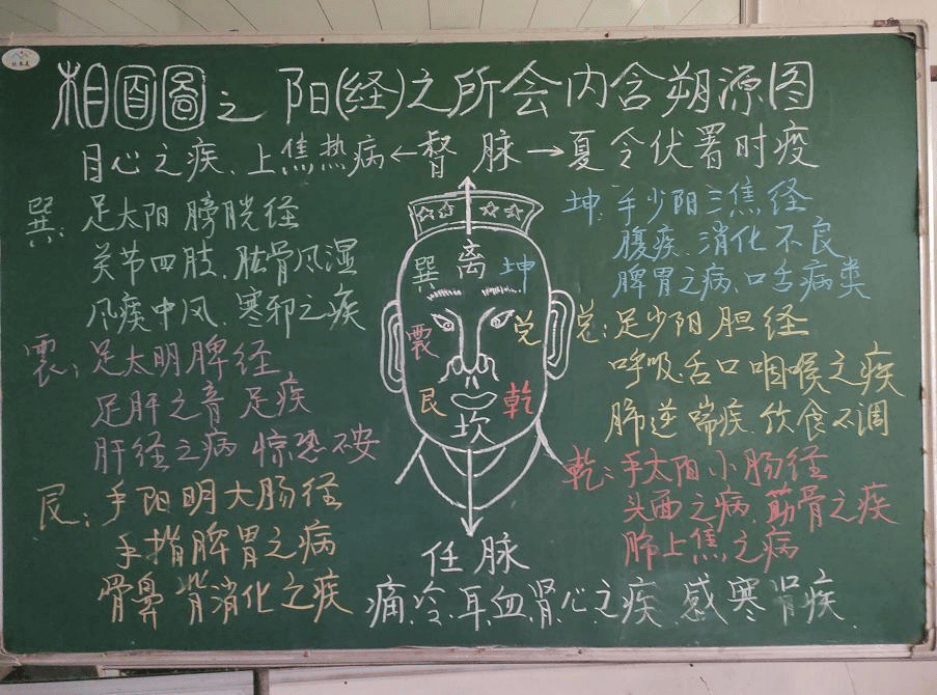 相面圖之 阳(经)之所会内含朔源图
目心之疾、上焦热病←督 脉→夏令伏署时疫
巽: 足太阳膀胱经
关节四肢、肱骨风湿
风痰中风、寒邪之疾
震: 足太明脾经
足肝之音 足疾
肝经之病 惊恐不安
艮: 手阳明大肠经
手指脾胃之病
骨鼻 背消化之疾
坤: 手少阳三焦经
腹疾、消化不良
脾胃之病、口舌病类
兑: 足少阳胆经
呼吸、舌口咽喉之疾
肺逆喘疾、饮食不调
乾: 手太阳小肠经
头面之病、筋骨之疾
肺上焦之病
巽 离 坤
震 兑
艮 乾
坎
任脉
痛冷、耳血肾心之疾、感寒肾疾